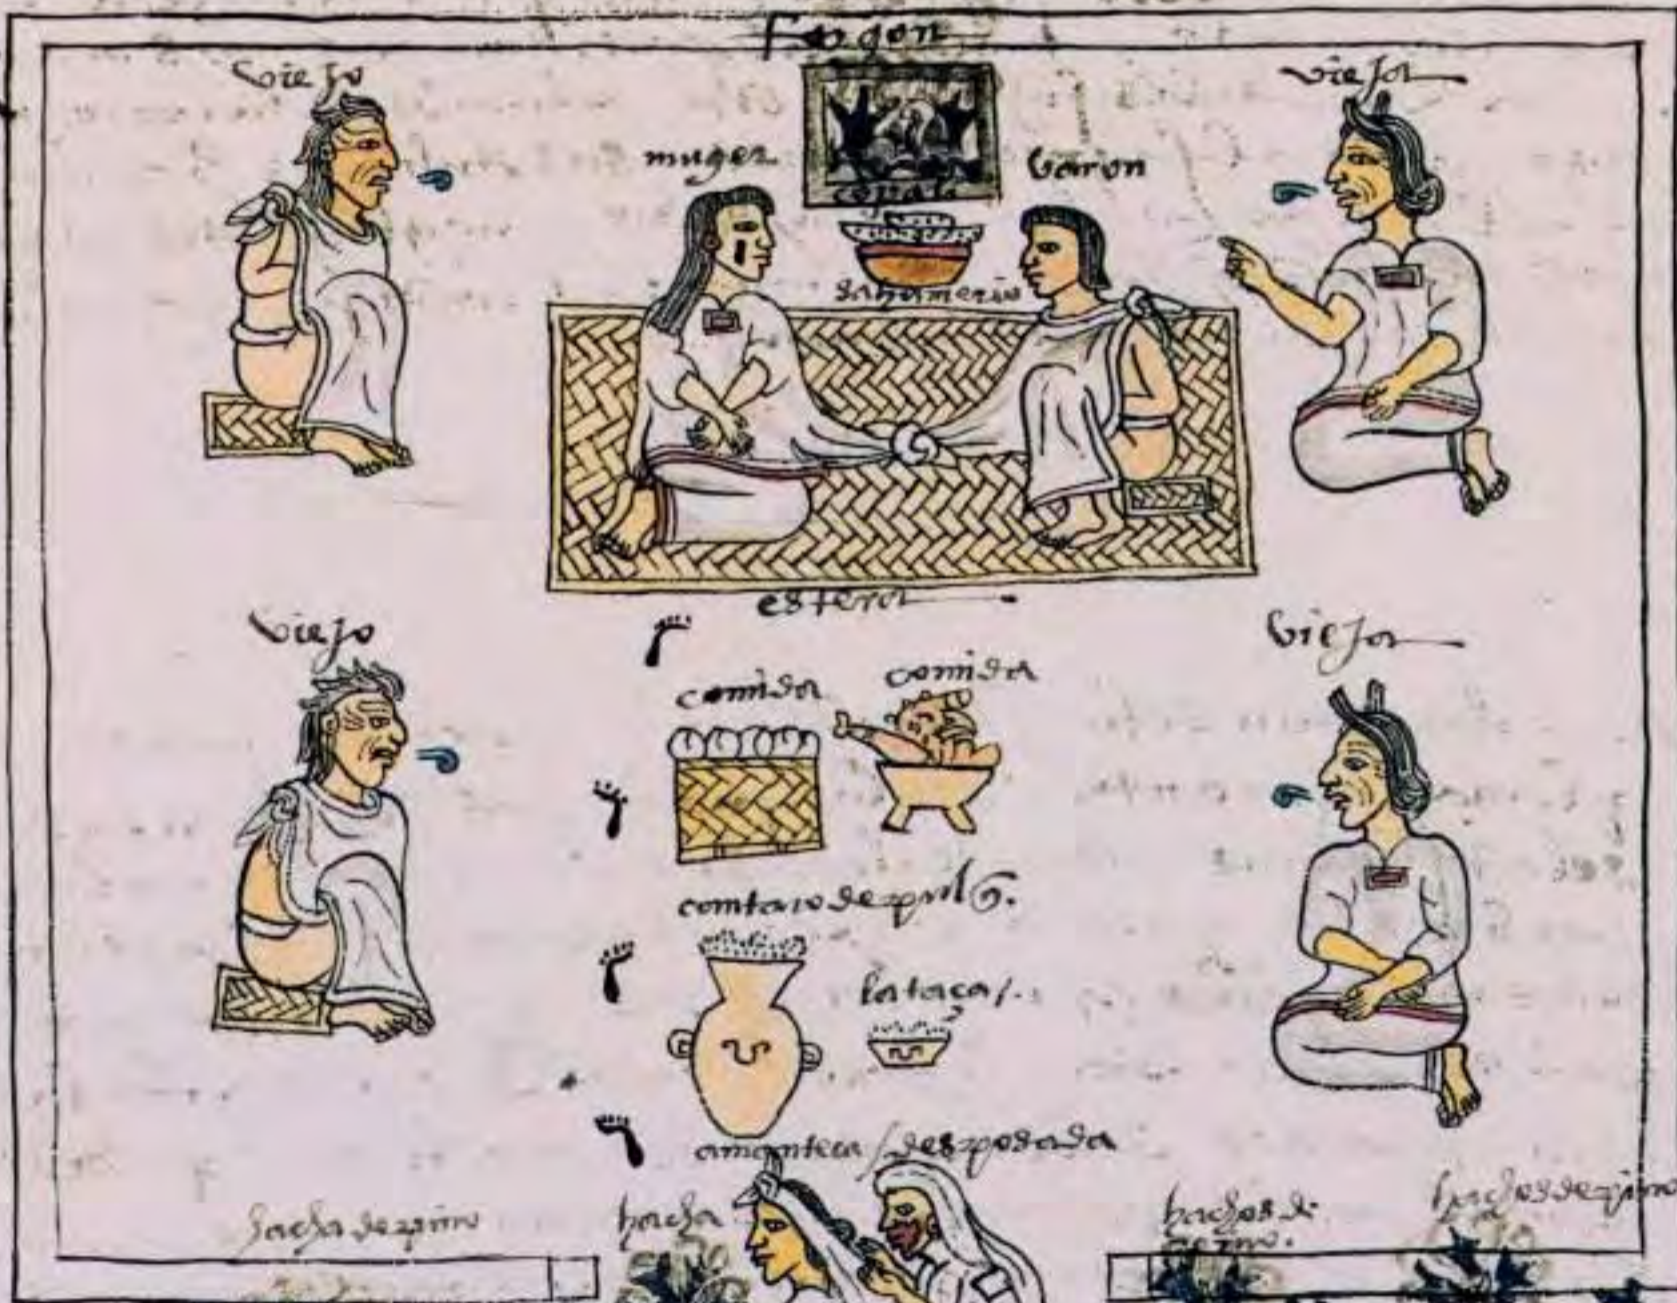 fogon
viejo
vieja
muger
varon
copale
sahumerio
estera
viejo
vieja
comida
comida
cantaro de pulq̃.
la taça/.
amanteca / desposada
hacha de pino
hacha
hachos de
pino.
hachos de pino